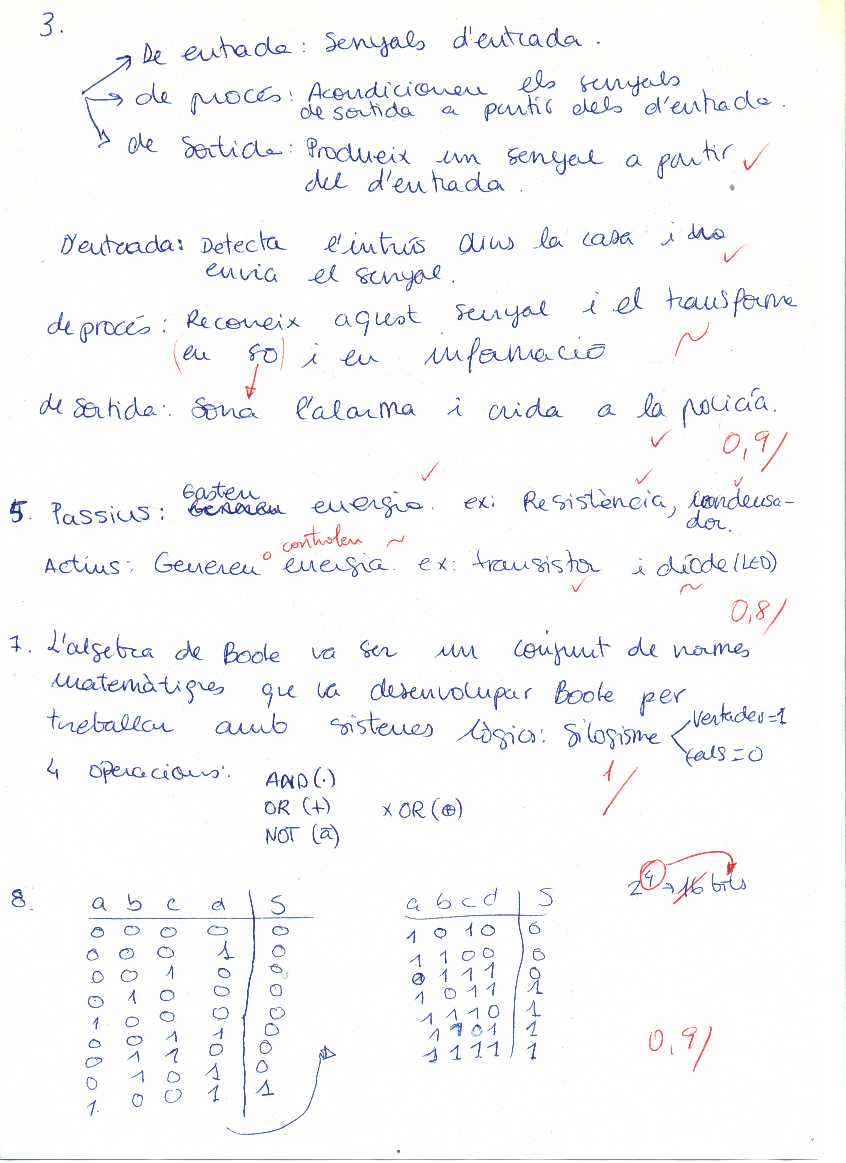 3.
De entrada: Senyals d'entrada.
de procés: Acondicionen els senyals
de sortida a partir dels d'entrada.
de Sortida: Produeix un senyal a partir
del d'entrada.
D'entrada: Detecta l'intrús dins la casa i
envia el senyal.
de procés: Reconeix aquest senyal i el transforma
(en so) i en informació
de sortida: Sona l'alarma i crida a la policía.
0,9/
5. Passius: Gasten energia. ex: Resistència, condensa-
dor.
controlen
Actius: Generen energia. ex: transistor i díode (LED)
0,8/
7. L'algebra de Boole va ser un conjunt de normes
matemàtiques que va desenvolupar Boole per
treballar amb sistemes lògics: Silogisme
Vertader=1
fals=0
4 operacions:
AND (·)
OR (+) XOR (⊕)
NOT (a̅)
1/
8.
a b c d | S
0 0 0 0 | 0
0 0 0 1 | 0
0 0 1 0 | 0
0 1 0 0 | 0
1 0 0 0 | 0
0 0 1 1 | 0
0 1 1 0 | 0
0 1 0 1 | 0
1 0 0 1 | 1
a b c d | S
1 0 1 0 | 0
1 1 0 0 | 0
0 1 1 1 | 0
1 0 1 1 | 1
1 1 1 0 | 1
1 1 0 1 | 1
1 1 1 1 | 1
2⁴ → 16 bits
0,9/